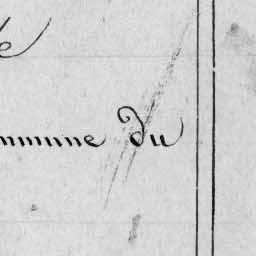 mmune du